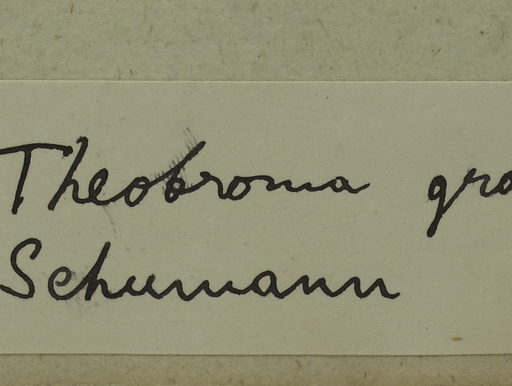 Theobroma gra
Schumann